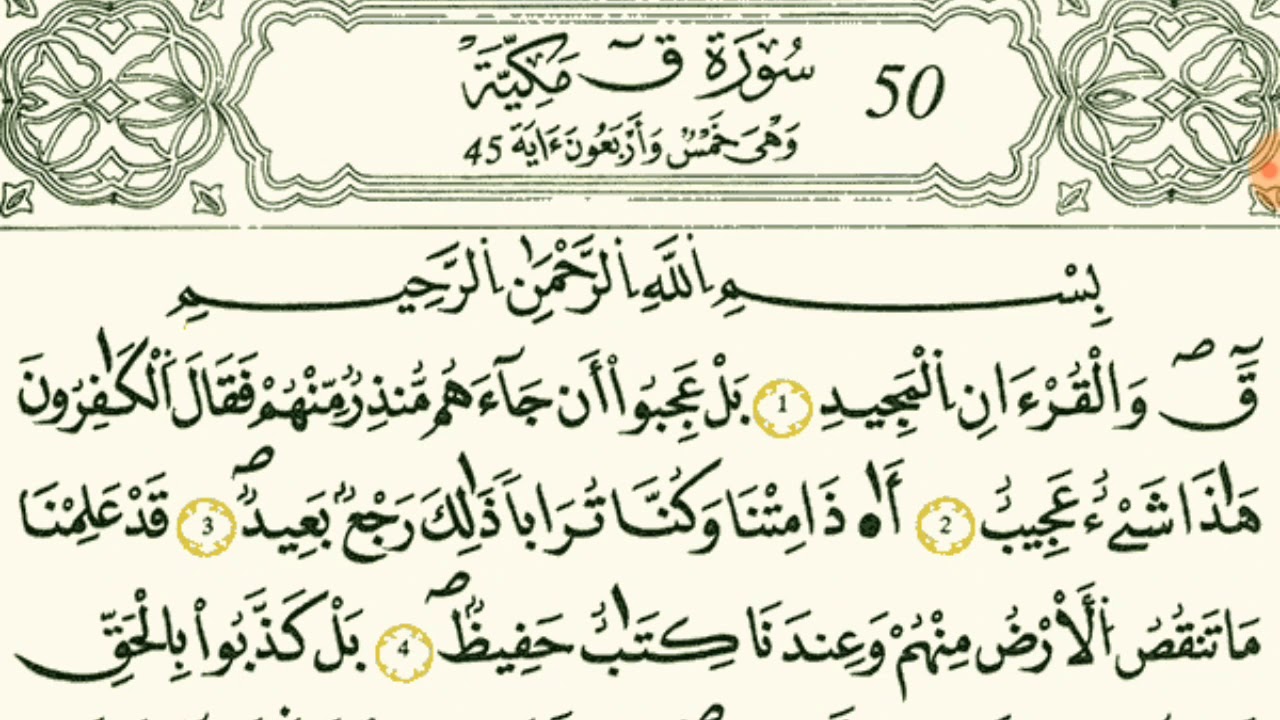 سُورَةُ قٓ مَكِّيَّةٌ 50
وَهْىَ خَمْسٌ وَأَرْبَعُونَ ءَايَةً 45
بِسْمِ اِ۬للَّهِ اِ۬لرَّحْمَٰنِ اِ۬لرَّحِيمِ
قَٓۖ وَالْقُرْءَانِ اِ۬لْمَجِيدِ 1 بَلْ عَجِبُوٓاْ أَن جَآءَهُم مُّنذِرٌ مِّنْهُمْ فَقَالَ اَ۬لْكَٰفِرُونَ
هَٰذَا شَےْءٌ عَجِيبٌ 2 أَ.ٰ۟ذَا مِتْنَا وَكُنَّا تُرَاباٗ ذَٰلِكَ رَجْعُۢ بَعِيدٞۖ 3 قَدْ عَلِمْنَا
مَا تَنقُصُ اُ۬لَارْضُ مِنْهُمْ وَعِندَنَا كِتَٰبٌ حَفِيظٞۖ 4 بَلْ كَذَّبُواْ بِالْحَقِّ